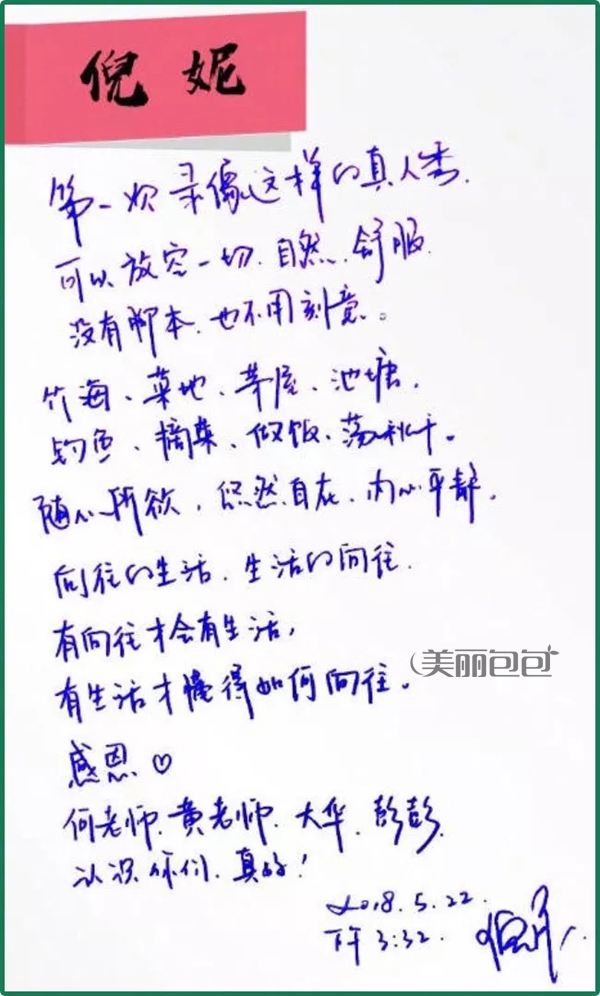 倪妮
第一次录像这样的真人秀.
可以放空一切.自然.舒服.
没有脚本.也不用刻意。
竹海、菜地、茅屋、池塘.
钓鱼、摘菜、做饭、荡秋千。
随心所欲,悠然自在.内心平静.
向往的生活.生活的向往.
有向往才会有生活,
有生活才懂得如何向往。
美丽包包
感恩♡
何老师.黄老师.大华.彭彭.
认识你们.真好!
2018.5.22.
下午3:32.